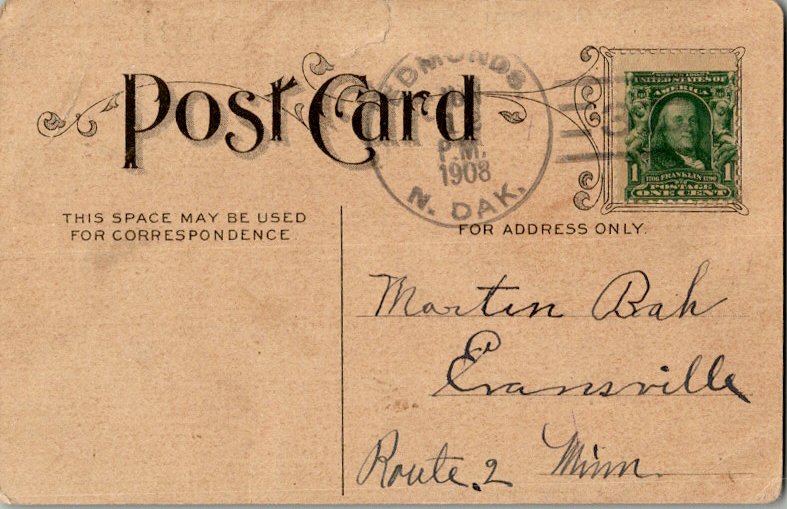 Post Card
EDMUNDS
P.M.
1908
N. DAK.
UNITED STATES OF
AMERICA
1 1706 FRANKLIN 1790 1
POSTAGE
ONE CENT
THIS SPACE MAY BE USED
FOR CORRESPONDENCE
FOR ADDRESS ONLY.
Martin Bah
Evansville
Route. 2 Minn.